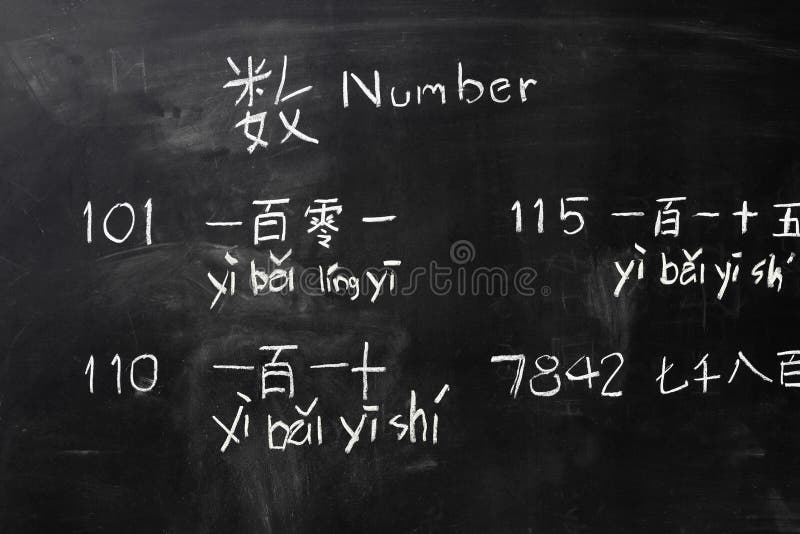 数 Number
101 一百零一 115 一百一十五
yì bǎi líng yī yì bǎi yī shí
110 一百一十 7842 七千八百
yì bǎi yī shí
dreamstime